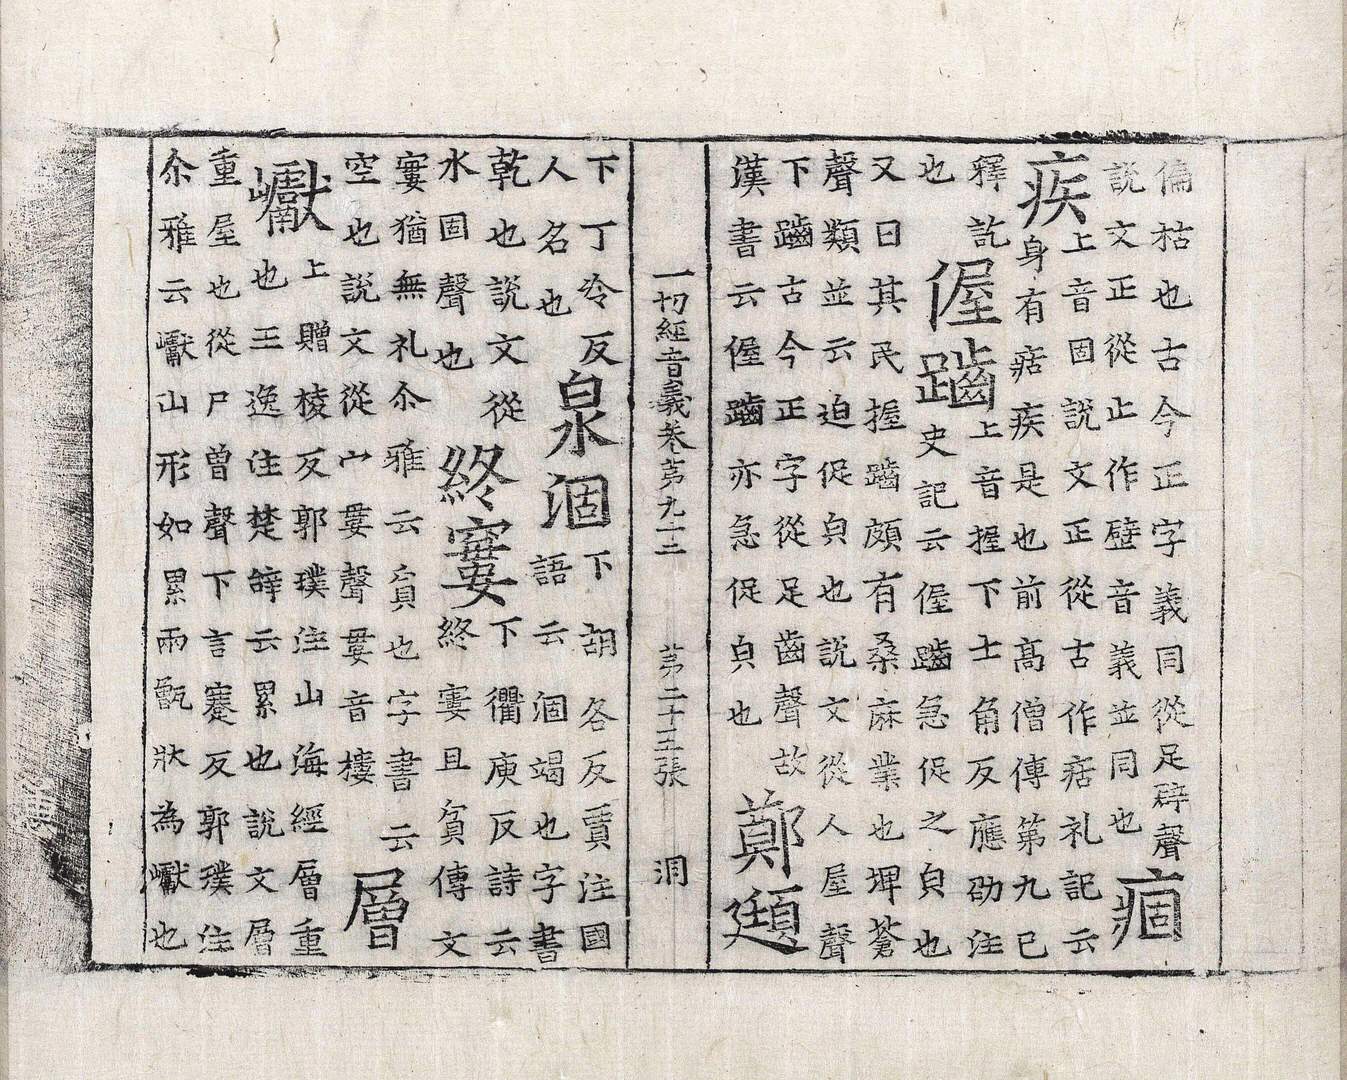 偏枯也古今正字義同從足辟聲痼
說文正從止作壁音義並同也
疾上音固說文正從古作𤶜礼記云
身有𤶜疾是也前高僧傳第九已
釋訖偓齷上音握下士角反應劭注
也史記云偓齷急促之皃也
又曰其民握齷頗有桑麻業也埤蒼
聲類並云迫促皃也說文從人屋聲
下齷古今正字從足齒聲故鄭𩔰
漢書云偓齷亦急促皃也
一切經音義卷苐九十二 苐二十三張 洞
下丁冷反泉涸下胡各反賈注國
人名也語云涸竭也字書
乾也說文從終窶下衢庾反詩云
水固聲也終窶且貧傳文
窶猶無礼尒雅云貧也字書云層
空也說文從宀婁聲婁音樓
巘上贈棱反郭璞注山海經層重
也王逸注楚辭云累也說文層
重屋也從尸曾聲下言蹇反郭璞注
尒雅云巘山形如累兩甑狀為巘也